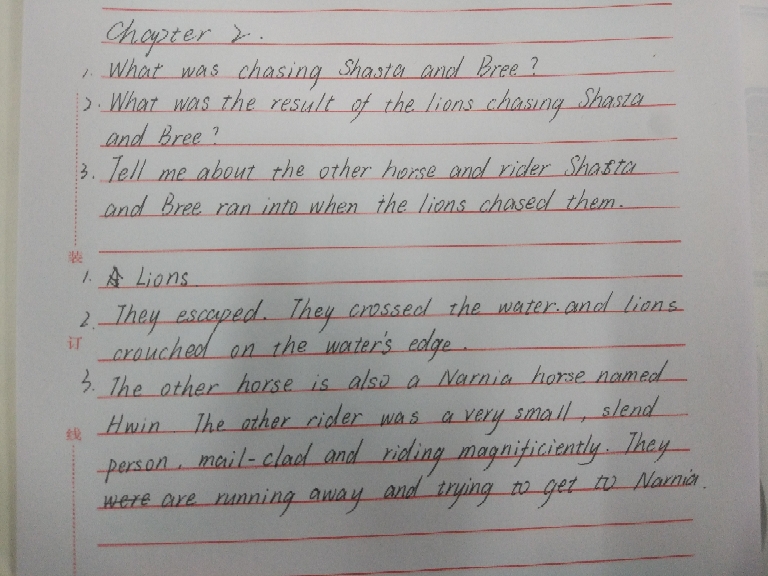 Chapter 2.
1. What was chasing Shasta and Bree?
2. What was the result of the lions chasing Shasta
and Bree?
3. Tell me about the other horse and rider Shasta
and Bree ran into when the lions chased them.
装
1. A Lions
2. They escaped. They crossed the water. and lions
订
crouched on the water's edge.
3. The other horse is also a Narnia horse named
Hwin The other rider was a very small, slend
线
person, mail-clad and riding magnificiently. They
were are running away and trying to get to Narnia.